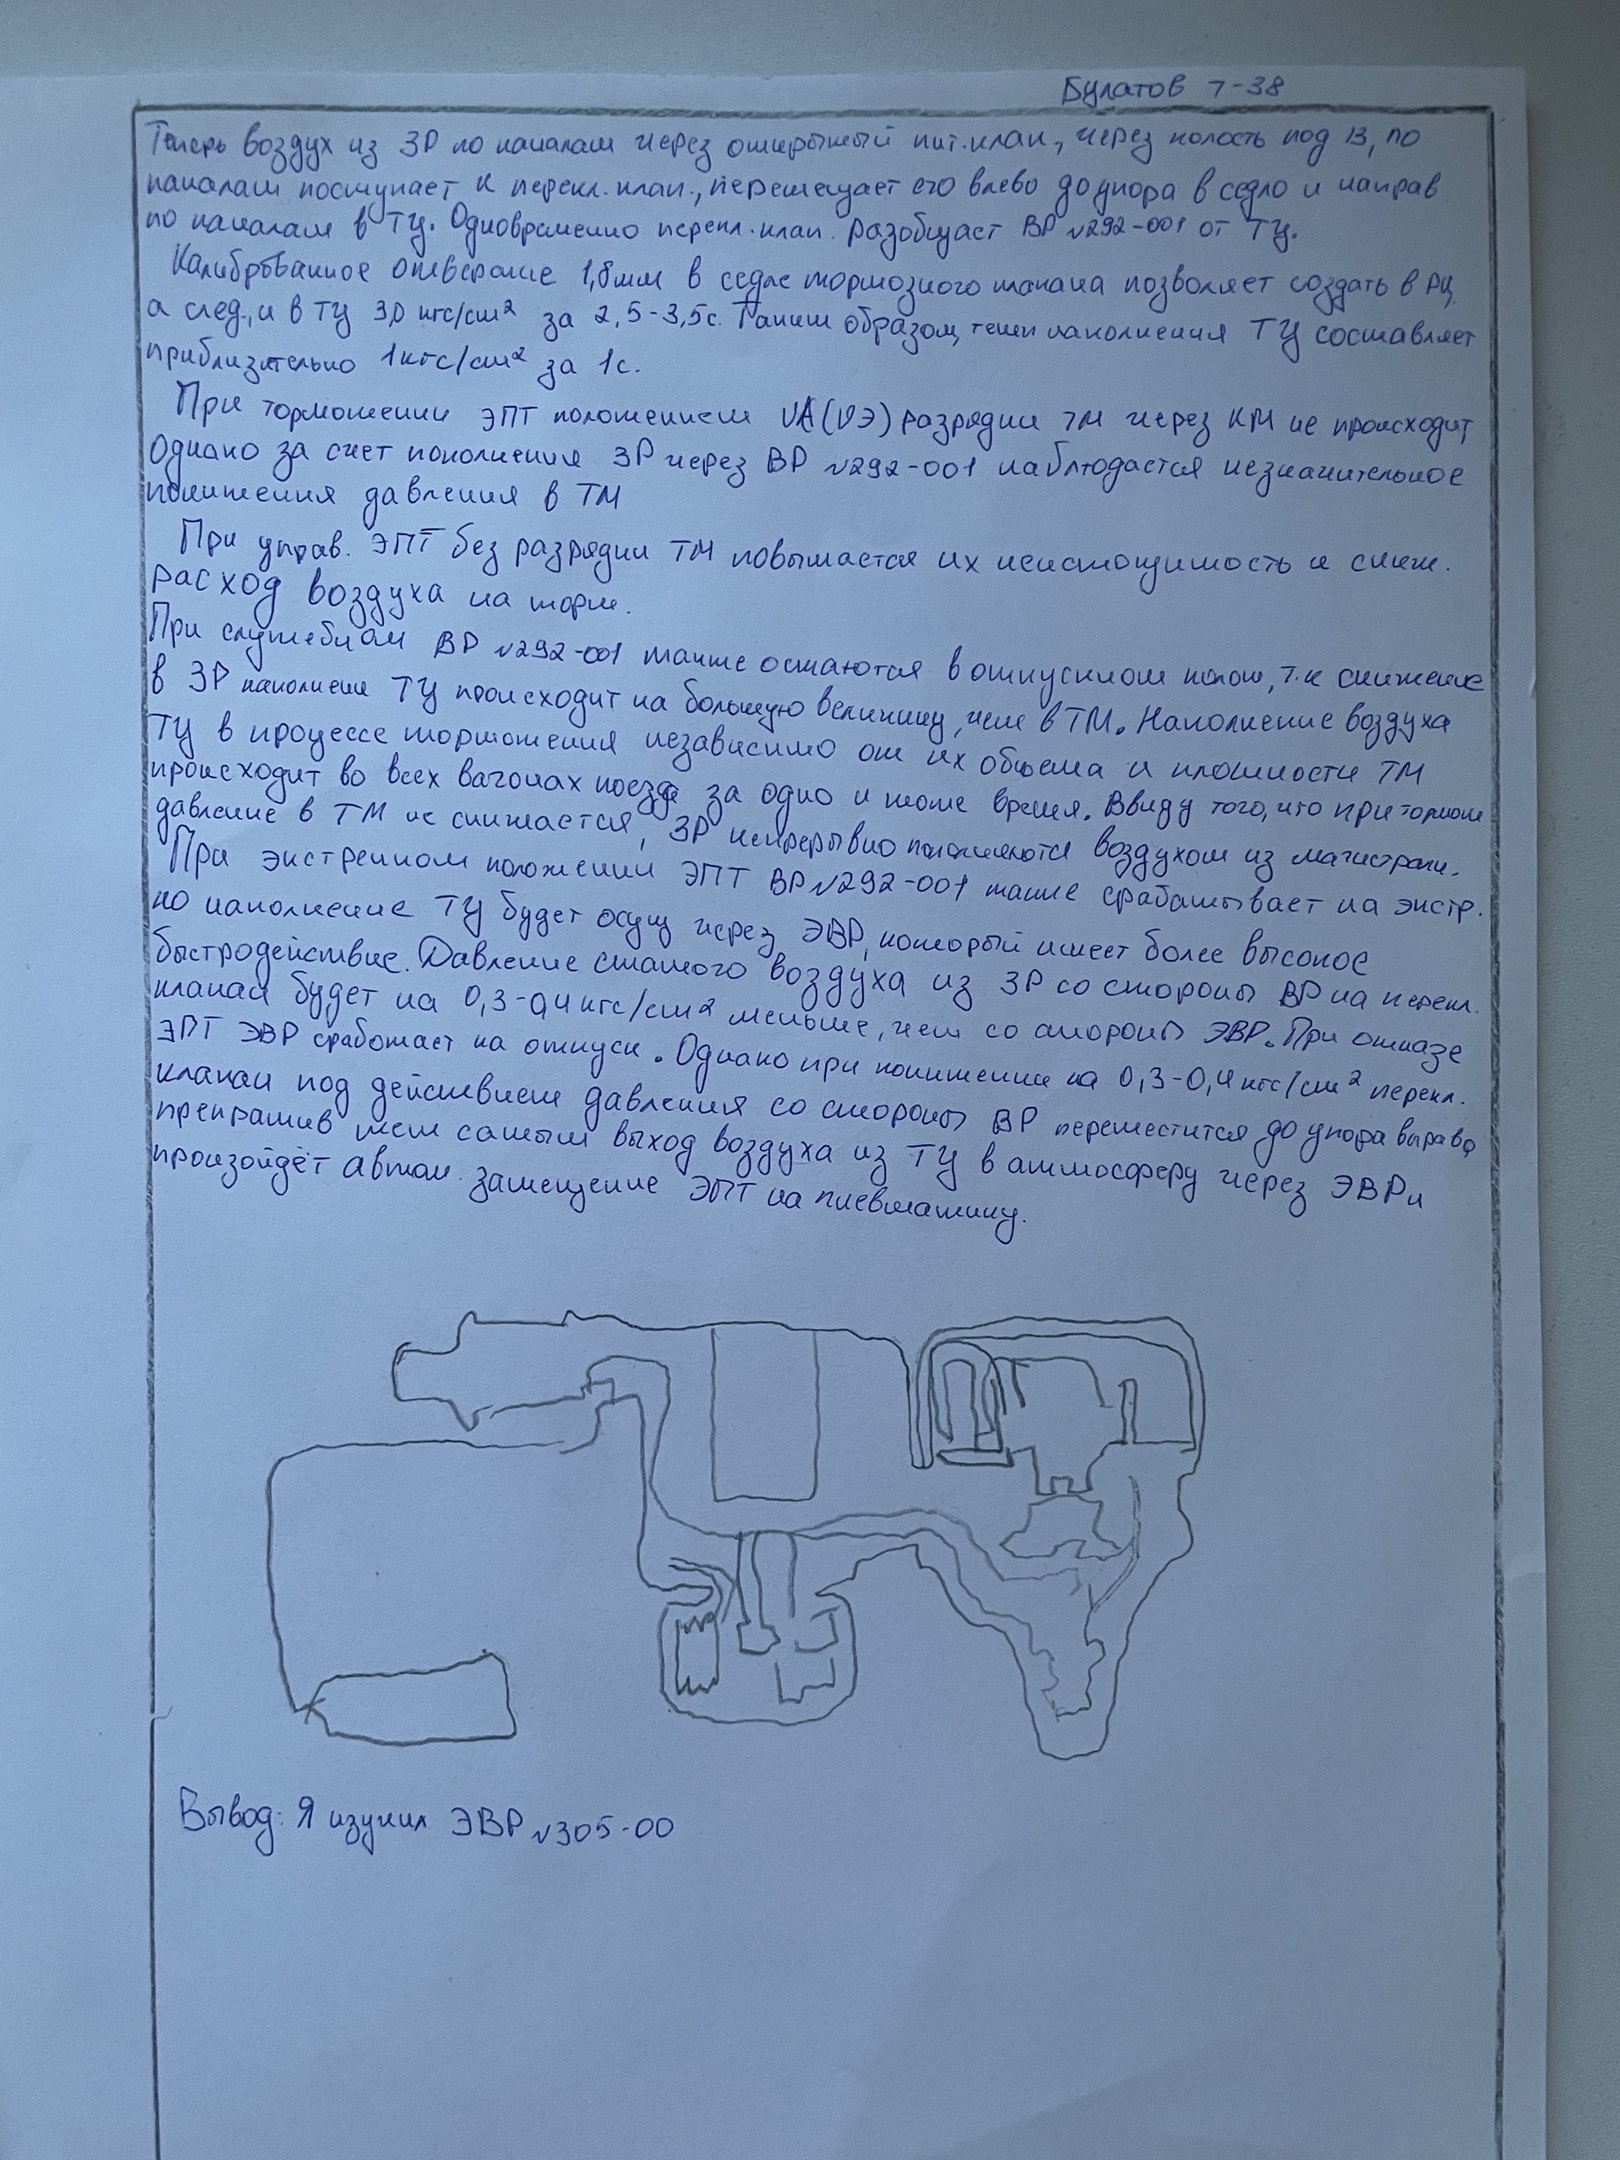 Булатов Т-38
Теперь воздух из ЗР по каналам через открытый пит.клап, через полость под В, по
каналам поступает к перекл.клап., перемещает его влево до упора в седло и направ
по каналам в ТЦ. Одновременно перекл.клап. разобщает ВР №292-001 от ТЦ.
Калиброванное отверстие 1,8мм в седле тормозного клапана позволяет создать в РЦ,
а след., и в ТЦ 3,0 кгс/см² за 2,5-3,5с. Таким образом, темп наполнения ТЦ составляет
приблизительно 1кгс/см² за 1с.
При торможении ЭПТ положением VA(VЭ) разрядки ТМ через КМ не происходит,
Однако за счет пополнения ЗР через ВР №292-001 наблюдается незначительное
понижения давления в ТМ
При управ. ЭПТ без разрядки ТМ повышается их неистощимость и сниж.
расход воздуха на торм.
При служебном ВР №292-001 также остаются в отпускном полож, т.к снижение
в ЗР наполнени ТЦ происходит на большую величину, чем в ТМ. Наполнение воздуха
ТЦ в процессе торможения независимо от их объема и плотности ТМ
происходит во всех вагонах поезда за одно и тоже время. Ввиду того, что при тормож
давление в ТМ не снижается, ЗР непрерывно пополняются воздухом из магистрали.
При экстренном положении ЭПТ ВР №292-001 также срабатывает на экстр.
но наполнение ТЦ будет осущ через ЭВР, который имеет более высокое
быстродействие. Давление сжатого воздуха из ЗР со стороны ВР на перекл.
клапан будет на 0,3-0,4кгс/см² меньше, чем со стороны ЭВР. При отказе
ЭПТ ЭВР сработает на отпуск. Однако при понижении на 0,3-0,4кгс/см² перекл.
клапан под действием давления со стороны ВР переместится до упора вправо,
прекратив тем самым выход воздуха из ТЦ в атмосферу через ЭВР и
произойдёт автом. замещение ЭПТ на пневматику.
Вывод: Я изучил ЭВР №305-00